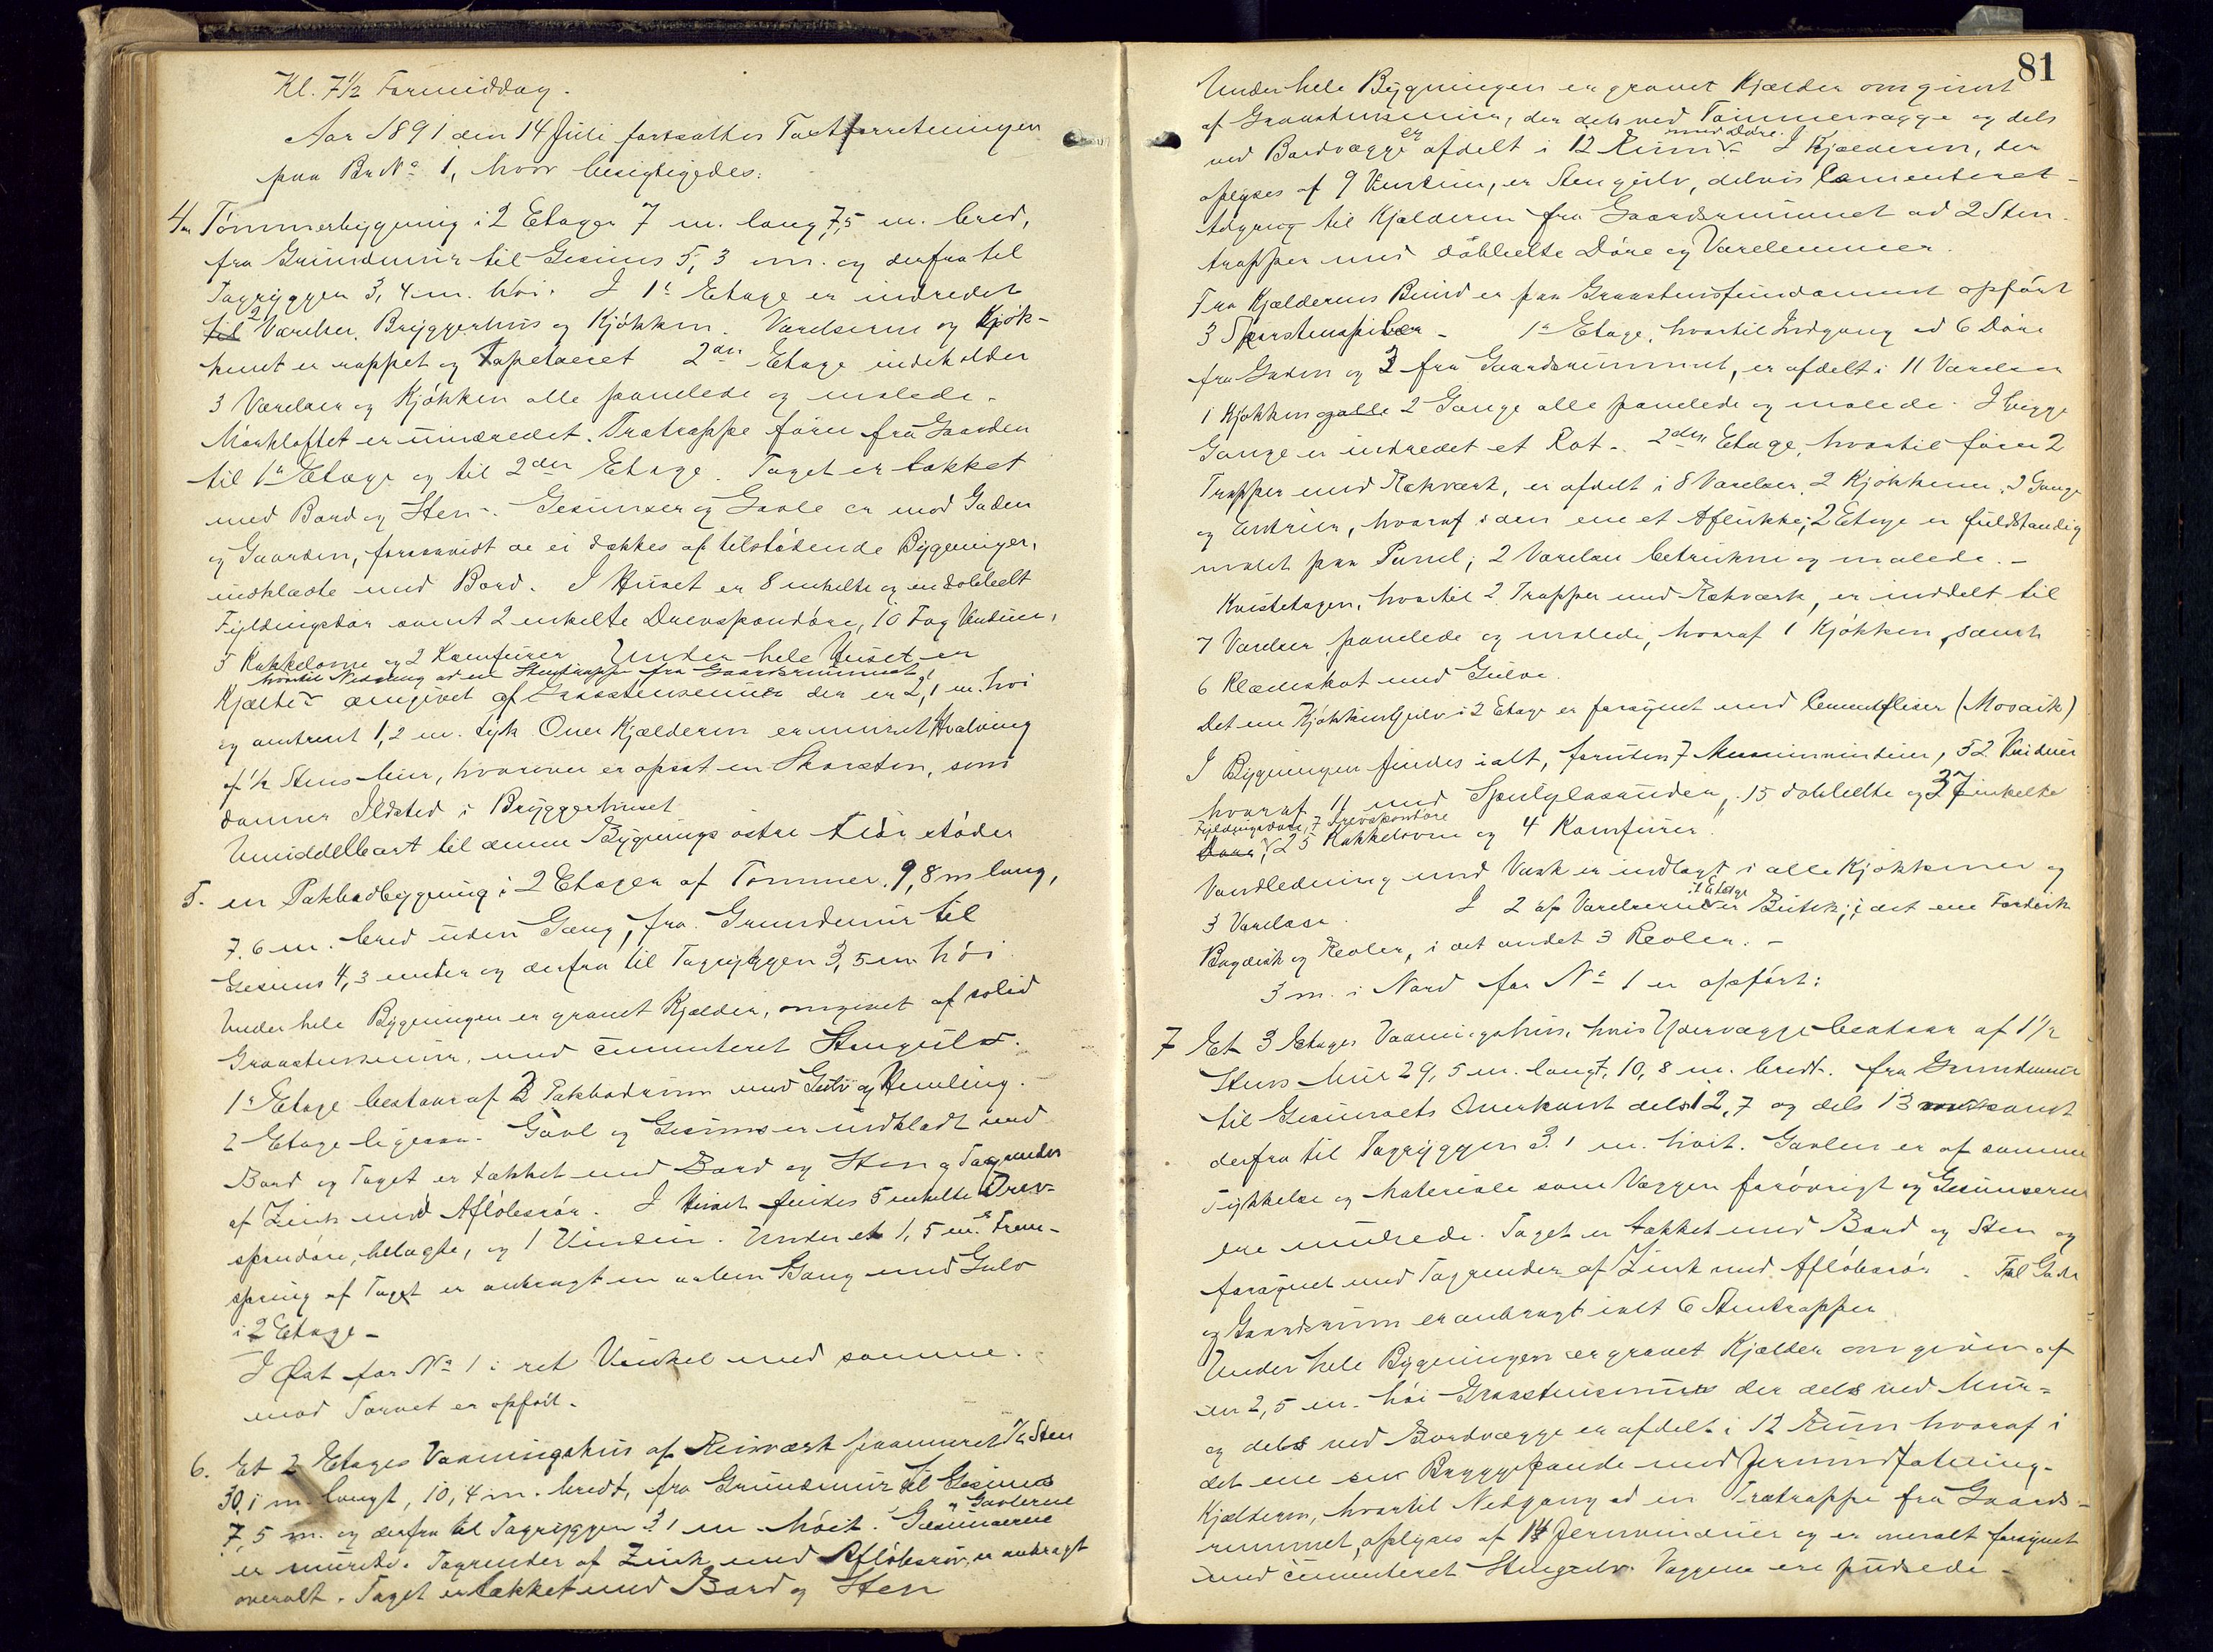 Kl. 7½ Formiddag.
Aar 1891 den 14 Juli fortsattes Taxtforretningen
paa Br No 1, hvor besigtigedes:
4. en Tömmerbygning i 2 Etager 7 m. lang, 7,5 m. bred,
fra Grundmur til Gesims 5,3 m. og derfra til
Tagryggen 3,4 m. höi. I 1e Etage er indredet
til 2 Værelser, Bryggerhus og Kjökken. Værelserne og Kjök-
kenet er rappet og Tapetseret 2den Etage indeholder
3 Værelser og Kjökken alle panelede og malede.
Mörkloftet er uindredet. Trætrappe förer fra Gaarden
til 1e Etage og til 2den Etage. Taget er tækket
med Bord og Sten. Gesimser og Gavle er mod Gaden
og Gaarden, forsaavidt de ei dækkes af tilstödende Bygninger,
indklædte med Bord. I Huset er 8 enkelte og en dobbelt
Fyldingsdör samt 2 enkelte Drevspondöre, 10 Fag Vinduer,
5 Kakkelovne og 2 Komfurer Under hele Huset er
hvortil Nedgang ad en Stentrappe fra Gaardsrummet
Kjælder omgivet af Graastensmur der er 2,1 m. höi
og omtrent 1,2 m. tyk. Over Kjælderen er muret Hvælving
af ½ Stens Mur, hvorover er opsat en Skorsten, som
danner Ildsted i Bryggerhuset
Umiddelbart til denne Bygnings östre Side stöder
5. en Pakbodbygning i 2 Etager af Tömmer, 9,8 m lang,
7.6 m. bred uden Gang, fra Grundmur til
Gesims 4,3 meter og derfra til Tagryggen 3,5 m höi.
Under hele Bygningen er gravet Kjælder, omgivet af solid
Graastensmur, med cementeret Stengulv.
1e Etage bestaar af 2 Pakbodrum med Gulv og Himling.
2 Etage ligesaa. Gavl og Gesims er indklædt med
Bord og Taget er tækket med Bord og Sten og Tagrender
af Zink med Aflöbsrör. I Huset findes 5 enkelte Drev-
spondöre, belagte, og 1 Vindu. Under et 1,5 m.s Frem-
spring af Taget er anbragt en aaben Gang med Gulv
i 2 Etage –
I Öst for No 1 i ret Vinkel med samme
mod Torvet er opfört.
6. Et 2 Etages Vaaningshus af Reisværk paamuret ½ Sten
30,1 m. langt, 10,4 m. bredt, fra Grundmur til Gesims
7,5 m. og derfra til Tagryggen 3,1 m. höit. Gesimserne og Gavlerne
er murede. Tagrender af Zink med Aflöbsrör er anbragt
overalt. Taget er tækket med Bord og Sten
81
Under hele Bygningen er gravet Kjælder omgivet
af Graastensmur, der dels ved Tömmervægge og dels
ved Bordvægge er afdelt i 12 Rum med Döre. I Kjælderen, der
oplyses af 9 Vinduer, er Stengulv, delvis Cementeret –
Adgang til Kjælderen fra Gaardsrummet ad 2 Sten-
trapper med dobbelte Döre og Varelemmer.
Fra Kjælderens Bund er paa Graastensfundament opfört
3 Skorstenspiber – 1e Etage, hvortil Indgang ad 6 Döre
fra Gaden og 3 fra Gaardsrummet, er afdelt i 11 Værelser
1 Kjökken og alle 2 Gange alle panelede og malede. I begge
Gange er indredet et Rot. 2den Etage, hvortil förer 2
Trapper med Rækværk, er afdelt i 8 Værelser, 2 Kjökkener, 2 Gange
og Entréer, hvoraf i den ene et Aflukke; 2 Etage er fuldstændig
malet paa Panel; 2 Værelser betrukne og malede. –
Kvistetagen, hvortil 2 Trapper med Rækværk, er inddelt til
7 Værelser, panelede og malede, hvoraf 1 Kjökken, samt
6 Klædeskot med Gulve.
Det ene Kjökkengulv i 2 Etage er forsynet med Cementfliser (Mosaik)
I Bygningen findes ialt, foruden 7 vinduer, 52 Vinduer
hvoraf 11 med Speilglasruder, 15 dobbelte og 37 enkelte
Fyldingsdöre, 7 Drevspondöre
Döre, 25 Kakkelovne og 4 Komfurer.
Vandledning med Vask er indlagt i alle Kjökkener og
3 Værelser. I 2 af Værelserne i 1 Etage er Butik; i det ene Fordisk
Bagdisk og Reoler, i det andet 3 Reoler. –
3 m. i Nord for No 1 er opfört:
7 Et 3 Etages Vaaningshus, hvis Ydervægge bestaar af 1½
Stens Mur 29,5 m. langt, 10,8 m. bredt. fra Grundmur
til Gesimsets Overkant dels 12,7 og dels 13 samt
derfra til Tagryggen 3.1 m. höit. Gavlen er af samme
Tykkelse og Materiale som Væggen forövrigt og Gesimserne
ere murede. Taget er tækket med Bord og Sten og
forsynet med Tagrender af Zink med Aflöbsrör. Til Gade
og Gaardsrum er anbragt ialt 6 Stentrapper
Under hele Bygningen er gravet Kjælder omgiven af
en 2,5 m. höi Graastensmur der dels ved Mur-
og dels ved Bordvægge er afdelt i 12 Rum hvoraf i
det ene en Bryggepande med Jernindfatning.
Kjælderen, hvortil Nedgang ad en Trætrappe fra Gaards-
rummet, oplyses af 14 Jernvinduer og er overalt forsynet
med cementeret Stengulv. Væggene ere pudsede –